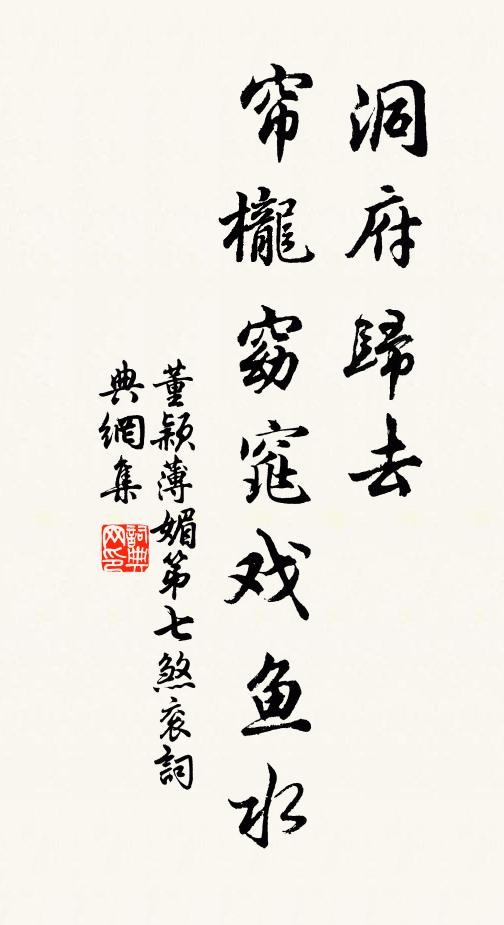 洞府歸去
帘櫳窈窕戏鱼水
董颖薄媚第七煞衮詞
典網集
詞典网印